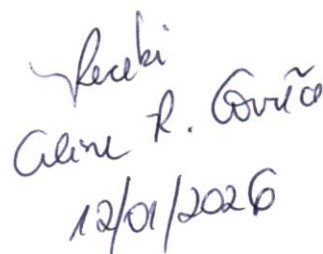 Recebi
Aline R. Corrêa
12/01/2026